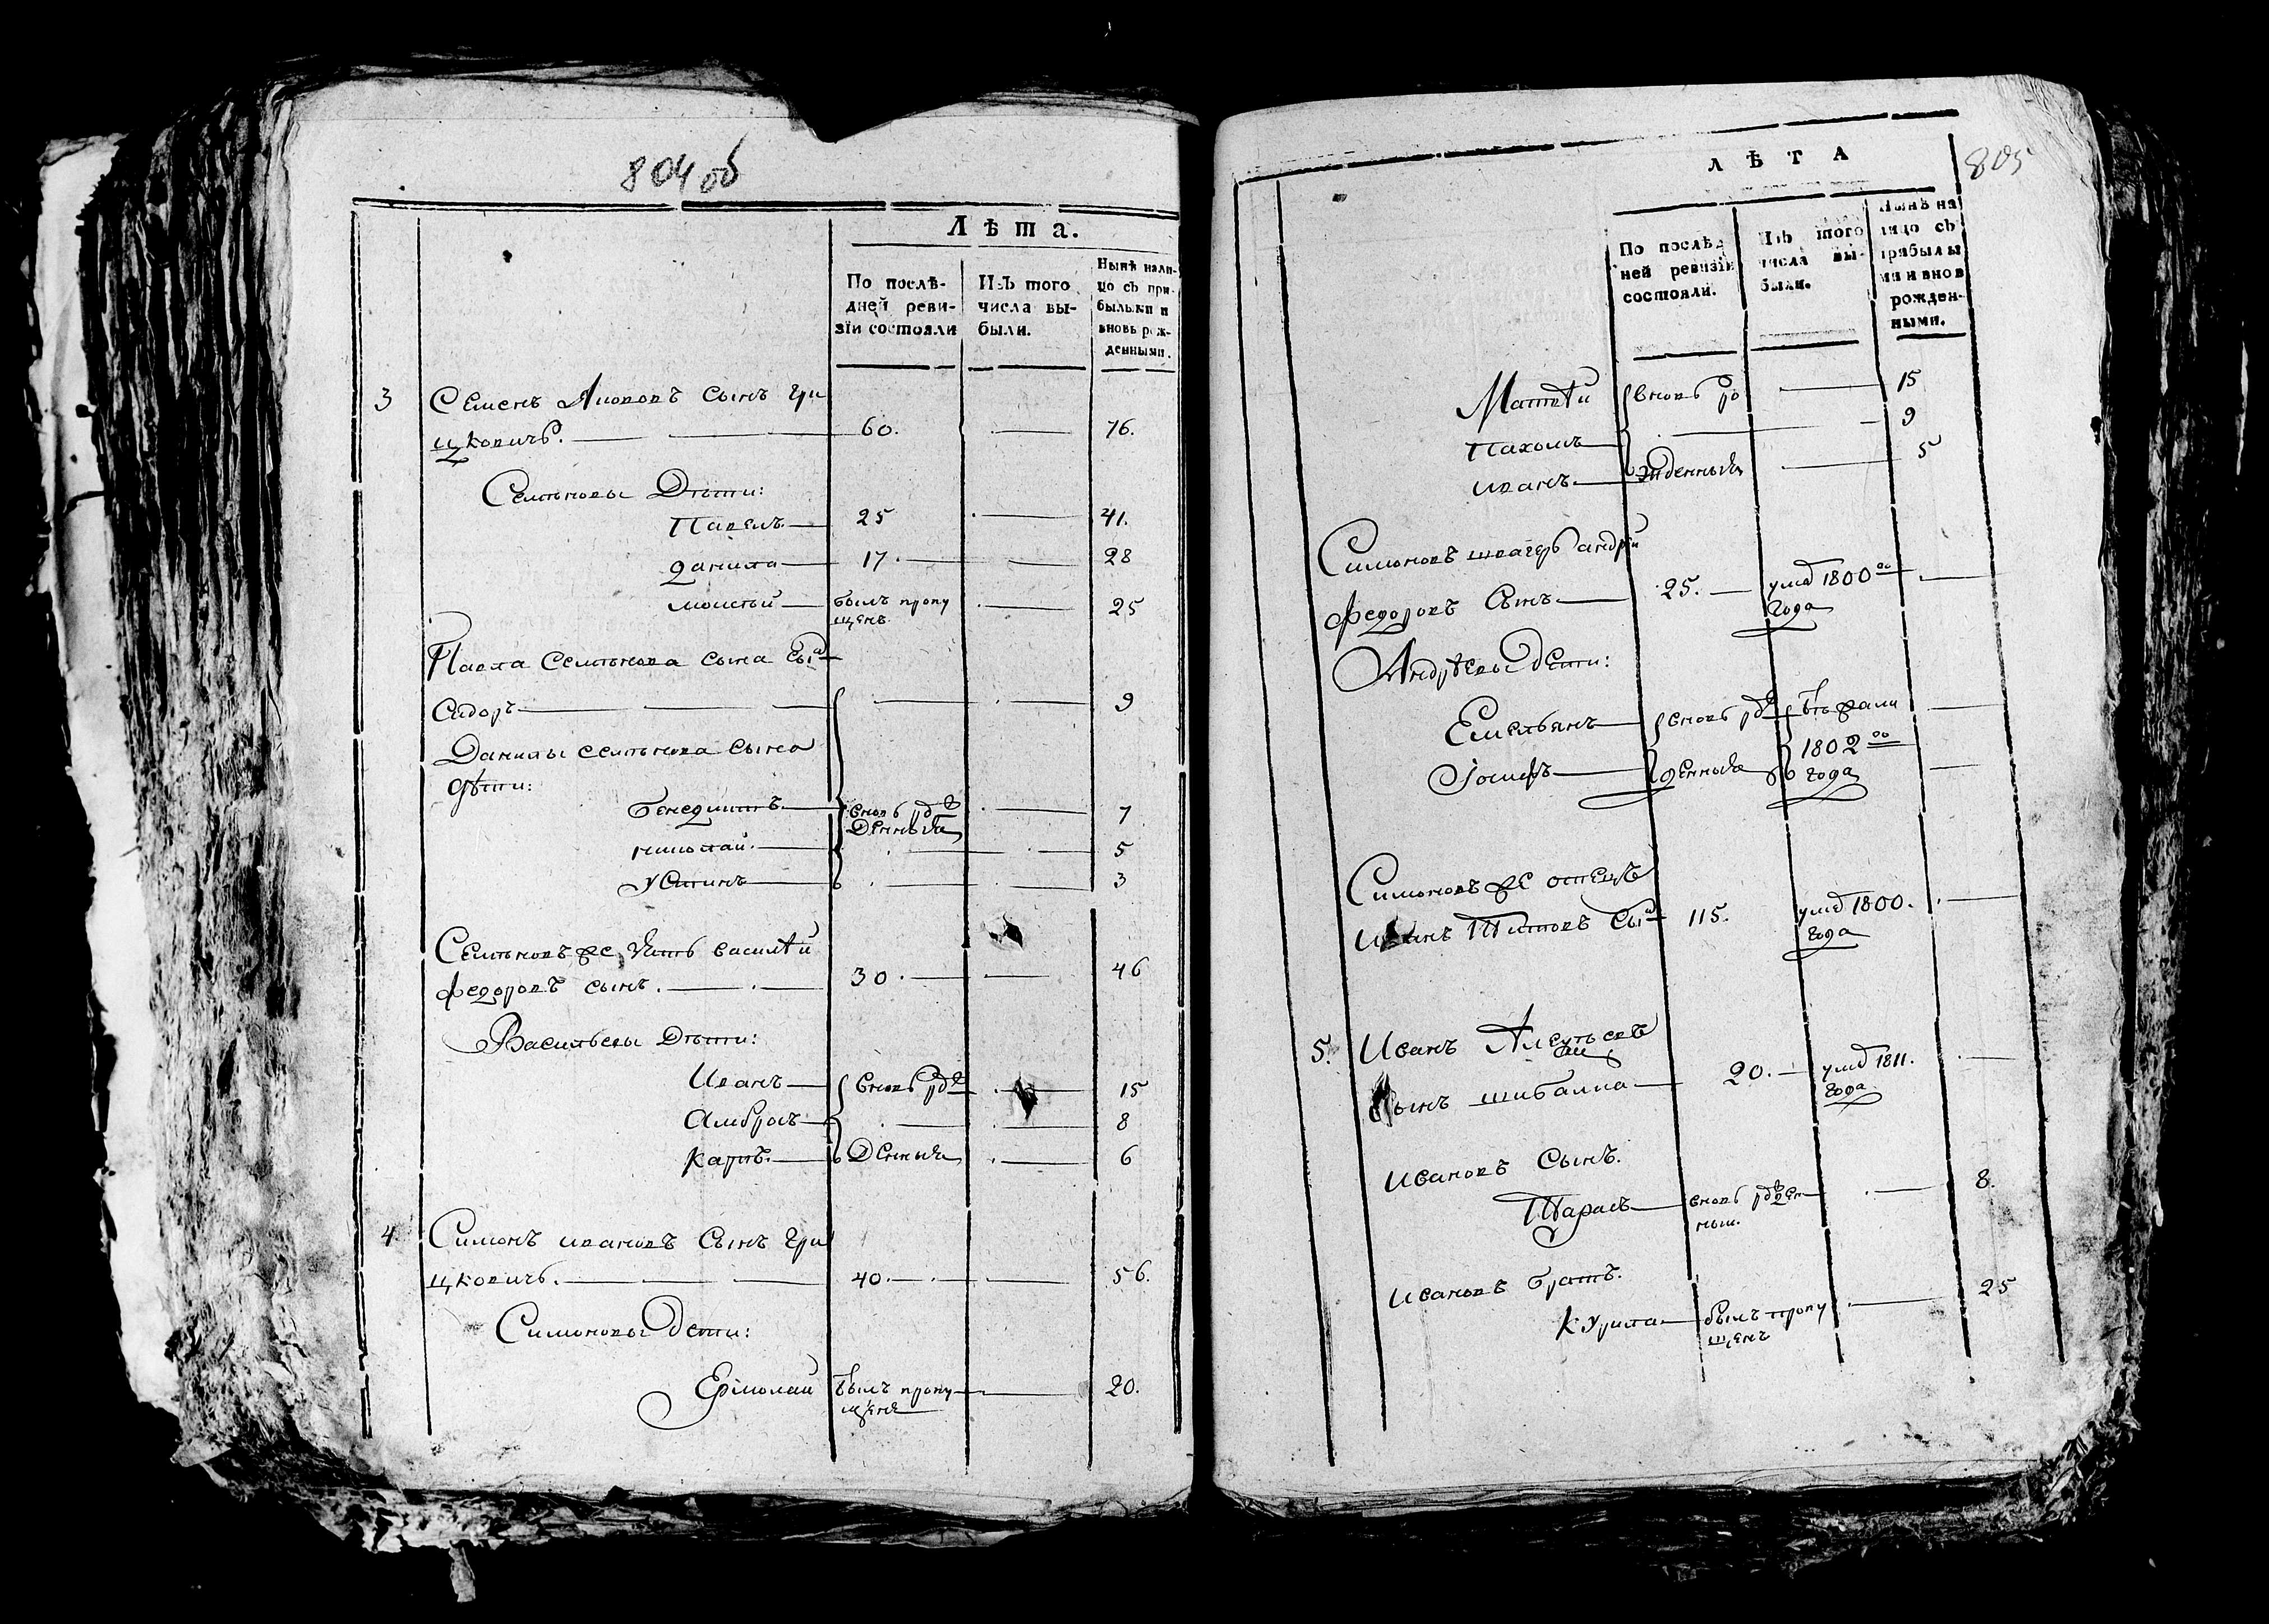 804 об
Лѣта.
По послѣ- дней реви- зіи состояли
Изъ того числа вы- были.
Нынѣ нали- цо съ при- былыми и вновь рож- денными.
3 Семенъ Якововъ сынъ Гри
цковичъ. 60. 76.
Семѣновы Дѣти:
Павелъ 25 41.
Данила 17. 28
Моисѣй былъ пропу щенъ 25
Павла Семѣнова сына сынъ
Сидоръ 9
Данилы Семѣнова сына
дѣти:
Бенедиктъ вновь рож денныя 7
Николай 5
Устинъ 3
Семѣновъ же зять Василѣй
Федоровъ сынъ. 30. 46
Васильевы Дѣти:
Иванъ вновь рож 15
Амбросъ 8
Карпъ. денныя 6
4 Симонъ Ивановъ сынъ Гри
цковичъ. 40. 56.
Симоновы дети:
Ермолай былъ пропу щенъ 20.
805
ЛѢТА
По послѣд ней ревизіи состояли.
Изъ того числа вы- были.
Нынѣ на лицо съ прибылы ми и внов рожден- ными.
Матвѣй вновь ро 15
Пахомъ 9
Иванъ жденныя 5
Симоновъ швагеръ Андрѣй
Федоровъ Сынъ 25. умре 1800го года
Андрѣевы дети:
Емельянъ вновь рож бѣжали
Іосифъ денныя въ 1802го года
Симоновъ же отецъ
Иванъ Титовъ сынъ 115. умре 1800. года
5. Иванъ Алексѣевъ
Сынъ Шибалка 20. умре 1811. года
Ивановъ Сынъ.
Тарасъ вновь рожден ный. 8.
Ивановъ братъ.
Курила былъ пропу щенъ 25